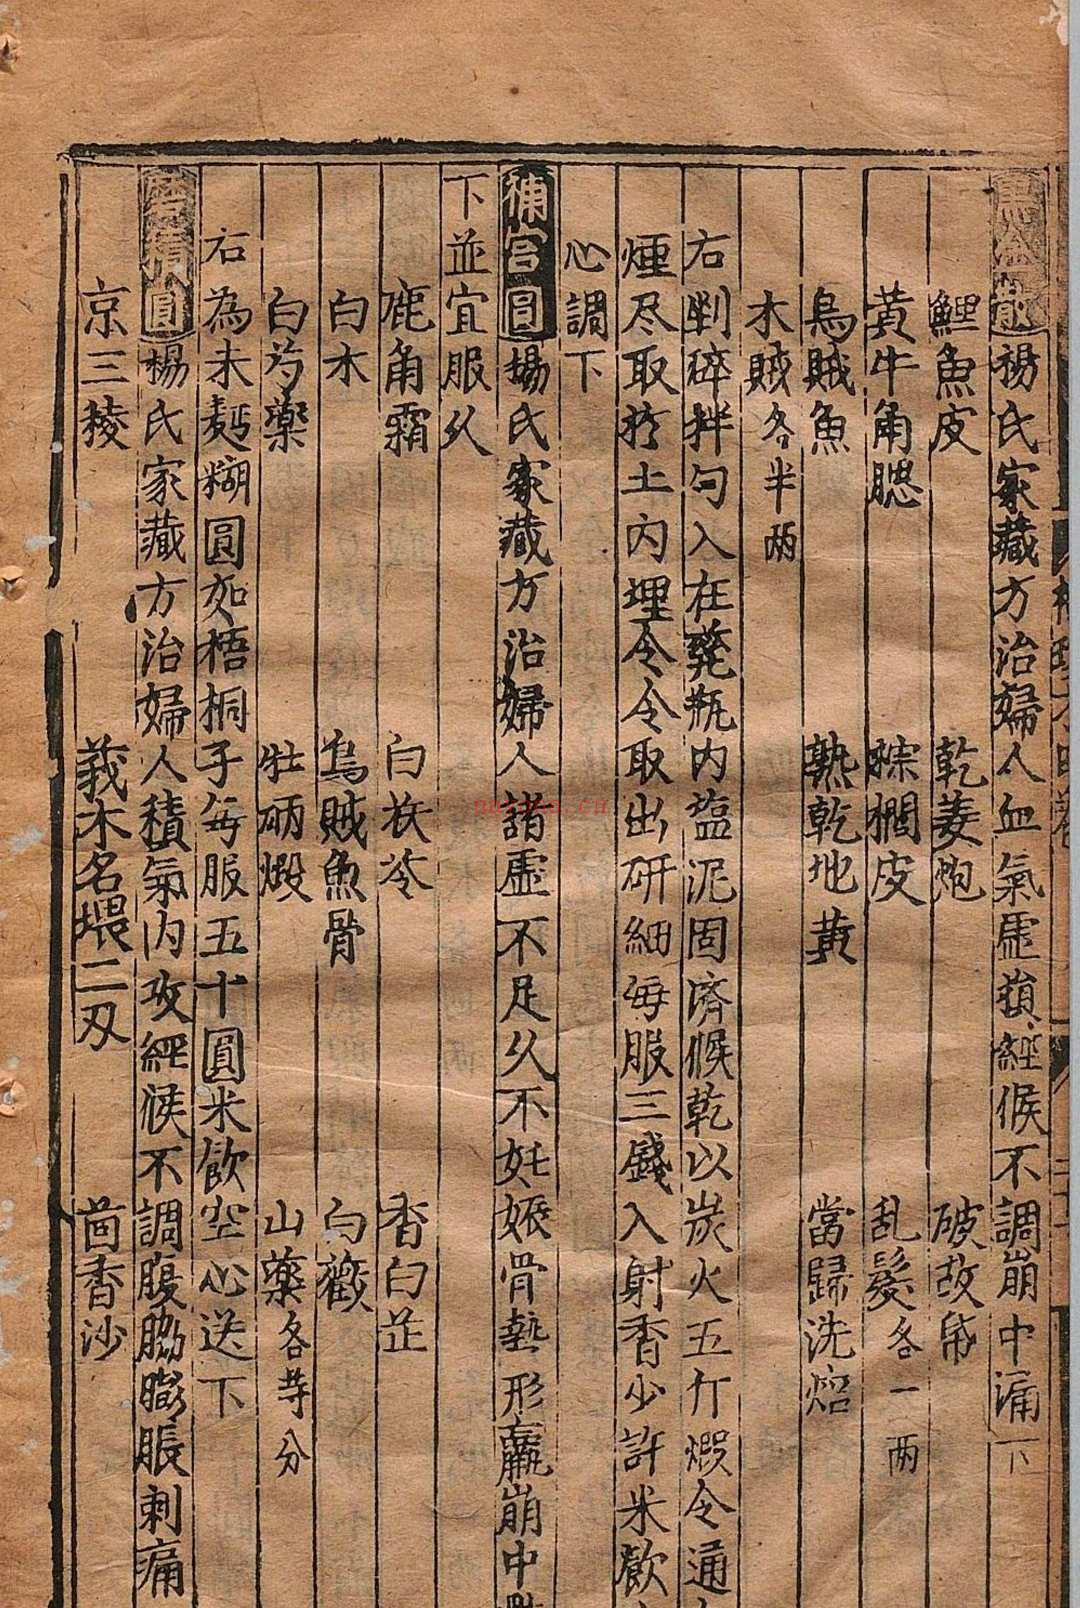 黑金散楊氏家藏方治婦人血氣虛損經候不調崩中漏下
鯉魚皮 乾姜炮 破故帋
黃牛角䚡 棕櫚皮 乱髮各一两
烏賊魚 熟乾地黃 當歸洗焙
木賊各半两
右剉碎拌匀入在甆瓶内盐泥固济候乾以炭火五斤煅令通
煙尽取於土内埋令令取出研細每服三錢入射香少許米飲
心調下
補宮圓楊氏家藏方治婦人諸虛不足久不妊娠骨熱形羸崩中
下並宜服久
鹿角霜 白茯苓 香白芷
白术 烏賊魚骨 白薇
白芍藥 牡蛎煅 山藥各等分
右為末麪糊圓如梧桐子每服五十圓米飲空心送下
磨積圓楊氏家藏方治婦人積氣内攻經候不調腹脇膨脹刺痛
京三稜 莪术名煨二两 茴香沙